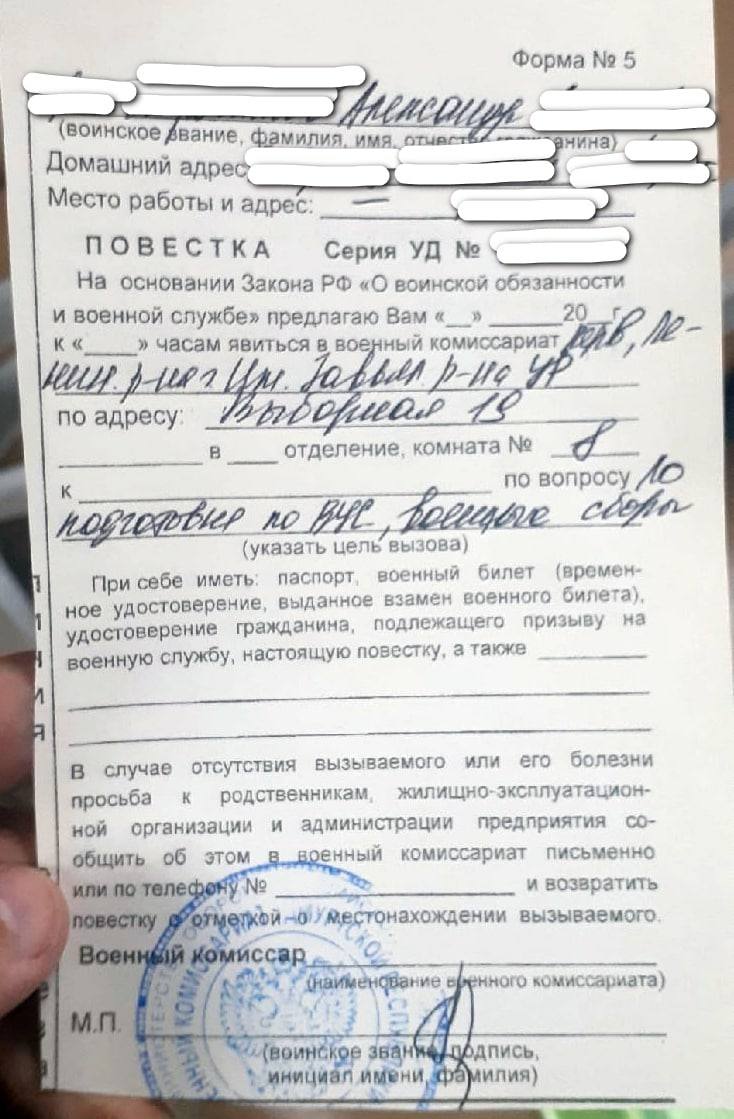 Форма № 5
Александр
(воинское звание, фамилия, имя, отчество гражданина)
Домашний адрес
Место работы и адрес: —
ПОВЕСТКА Серия УД №
На основании Закона РФ «О воинской обязанности
и военной службе» предлагаю Вам «__» ______ 20__г.
к «____» часам явиться в военный комиссариат Ле-
нин. р-на г Иж. Завьял. р-на УР
по адресу: Выборная 19
________ в ____ отделение, комната № 8
к ________ по вопросу По
подготовке по ВУС, военные сборы
(указать цель вызова)
При себе иметь: паспорт, военный билет (времен-
ное удостоверение, выданное взамен военного билета),
удостоверение гражданина, подлежащего призыву на
военную службу, настоящую повестку, а также ________
В случае отсутствия вызываемого или его болезни
просьба к родственникам, жилищно-эксплуатацион-
ной организации и администрации предприятия со-
общить об этом в военный комиссариат письменно
или по телефону № ________ и возвратить
повестку с отметкой о местонахождении вызываемого.
Военный комиссар
(наименование военного комиссариата)
М.П.
(воинское звание, подпись,
инициал имени, фамилия)